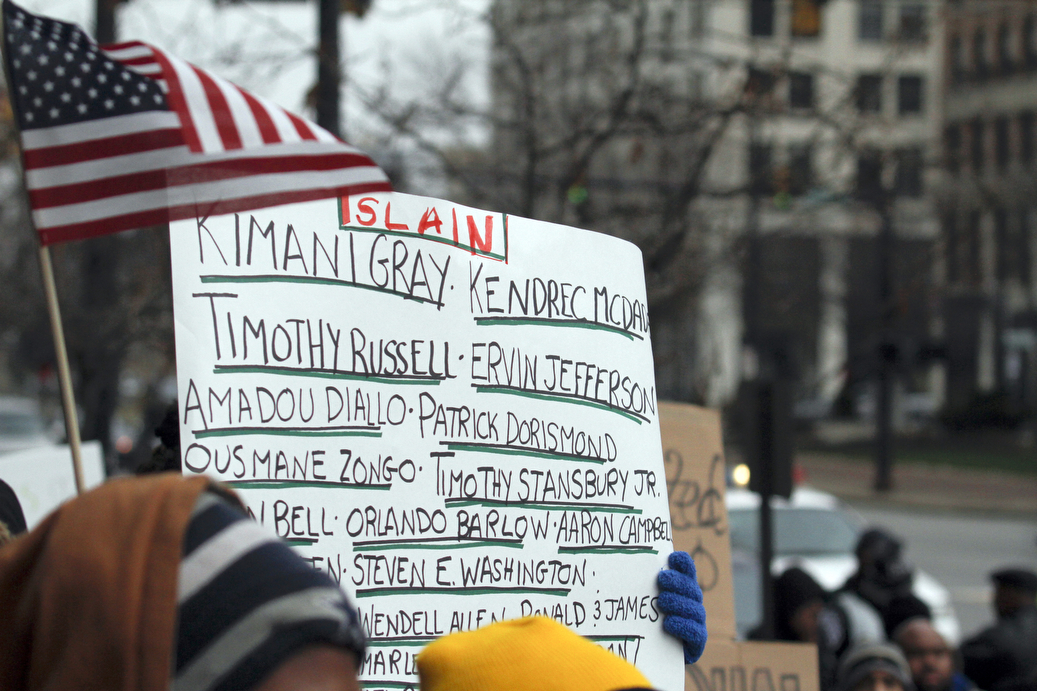 SLAIN
KIMANI GRAY · KENDREC
TIMOTHY RUSSELL · ERVIN JEFFERSON
AMADOU DIALLO · PATRICK DORISMOND
OUSMANE ZONGO · TIMOTHY STANSBURY JR.
BELL · ORLANDO BARLOW · AARON CAMPBELL
· STEVEN E. WASHINGTON ·
WENDELL ALLEN RONALD & JAMES